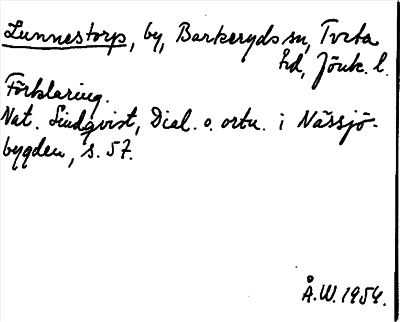 Lunnestorp, by, Barkeryds sn, Tveta
hd, Jönk. l.
Förklaring.
Nat. Lindqvist, Dial. o. ortn. i Nässjö-
bygden, s. 57.
Å.W. 1954.